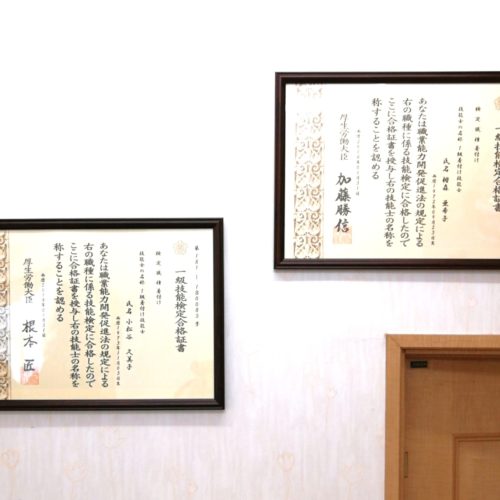 一級技能検定合格証書
検定職種 着付け
技能士の名称 1級着付け技能士
氏名
亜希子
あなたは職業能力開発促進法の規定による
右の職種に係る技能検定に合格したので
ここに合格証書を授与し右の技能士の名称を
称することを認める
厚生労働大臣
加藤勝信
一級技能検定合格証書
検定職種 着付け
技能士の名称 1級着付け技能士
氏名 小松谷 久美子
あなたは職業能力開発促進法の規定による
右の職種に係る技能検定に合格したので
ここに合格証書を授与し右の技能士の名称を
称することを認める
厚生労働大臣
根本 匠